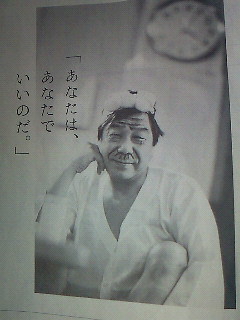 「あなたは、
あなたで
いいのだ。」